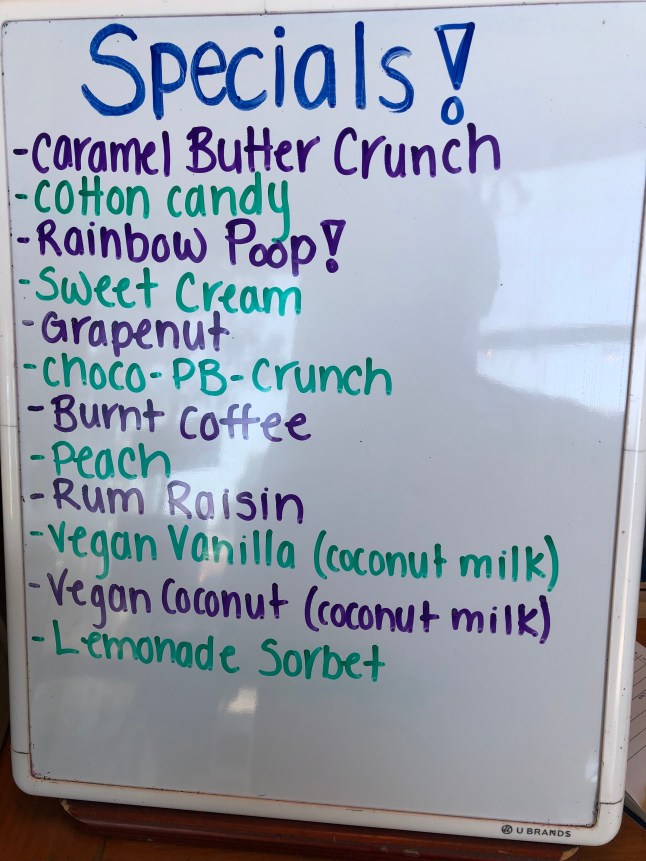 Specials!
-Caramel Butter Crunch
-Cotton candy
-Rainbow Poop!
-Sweet Cream
-Grapenut
-Choco-PB-Crunch
-Burnt Coffee
-Peach
-Rum Raisin
-Vegan Vanilla (coconut milk)
-Vegan Coconut (coconut milk)
-Lemonade Sorbet
U BRANDS